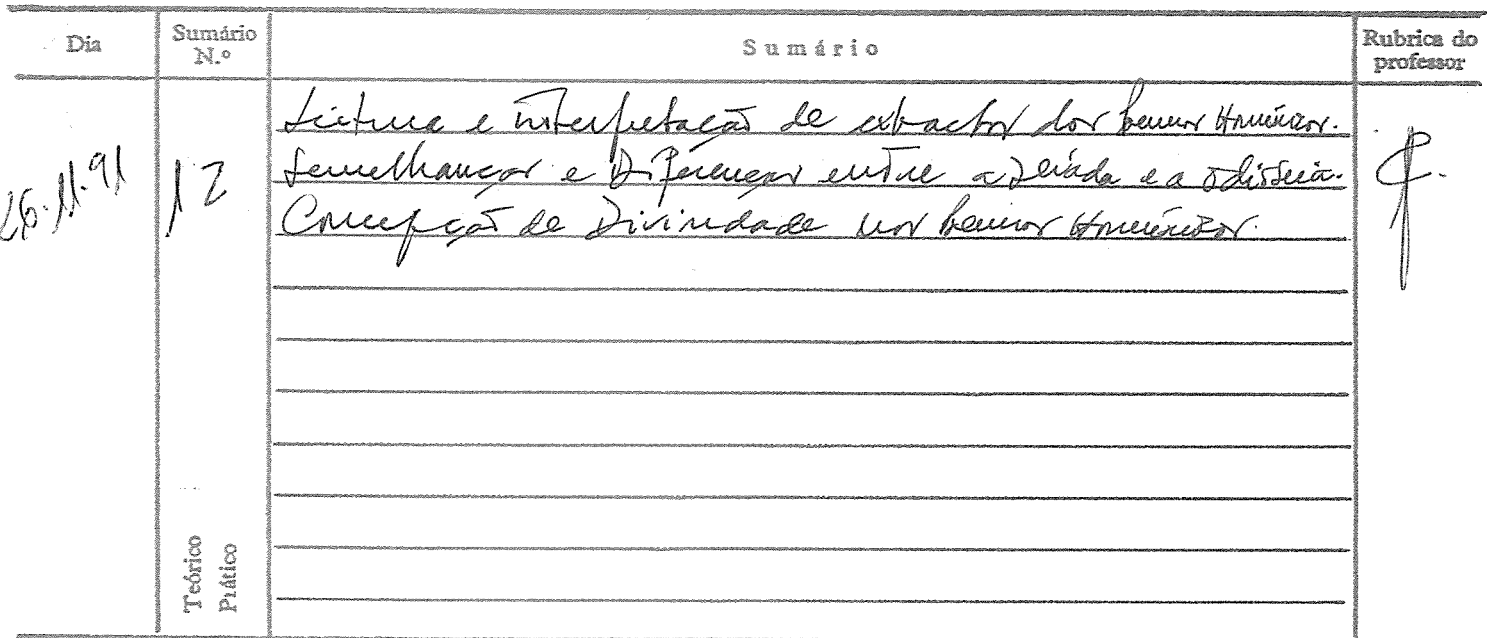 Dia Sumário N.º Sumário Rubrica do professor
26.11.91 12 Leitura e interpretação de extractos dos Poemas Homéricos.
Semelhanças e Diferenças entre a Ilíada e a Odisseia.
Concepção de Divindade nos Poemas Homéricos.
Teórico
Prático